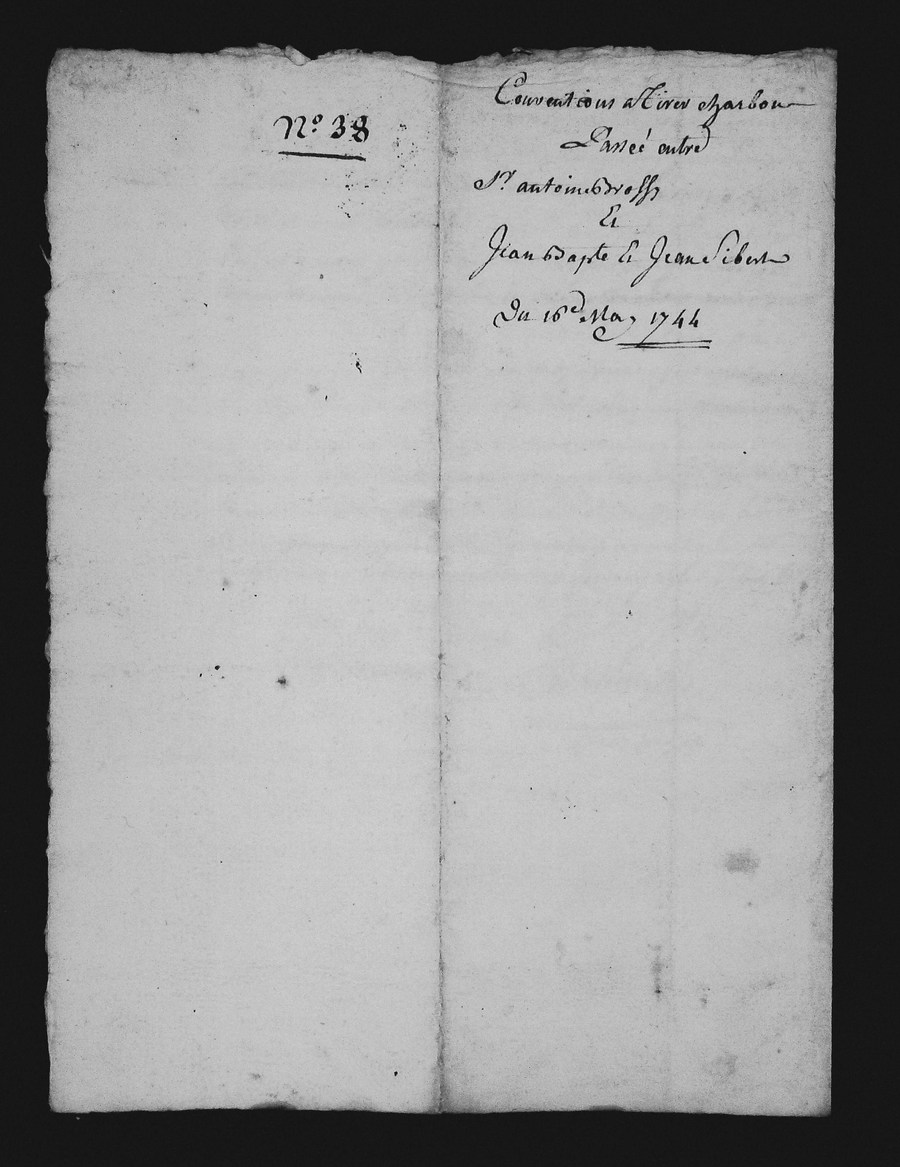 N.° 38
Conventions a Tirer charbon
Passeé entre
Sr. antoine Brosse
Et
Jean Bapte Et Jean Sibert
Du 16e May 1744